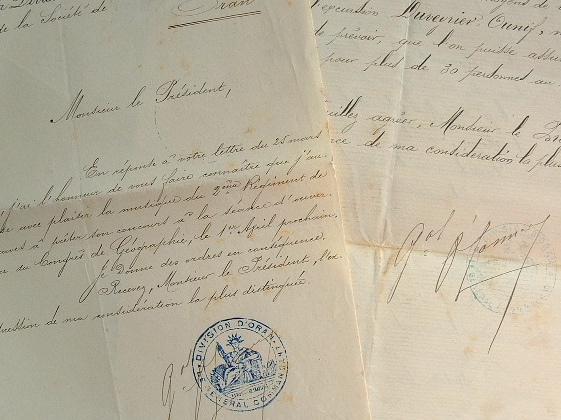 de la Société de
Oran
Monsieur le Président,
En réponse à votre lettre du 25 mars
j'ai l'honneur de vous faire connaître que j'au-
avec plaisir la musique du 2ème Régiment de
à prêter son concours à la séance d'ouver-
du Congrès de Géographie, le 1er April prochain.
Je donne des ordres en conséquence.
Recevez, Monsieur le Président, l'ex-
pression de ma considération la plus distinguée.
DIVISION D'ORAN
GÉNÉRAL COMMANDANT LA
l'excursion
prévoir, que l'on puisse assu
pour plus de 30 personnes au
Veuillez agréer, Monsieur le Pré
de ma considération la plus